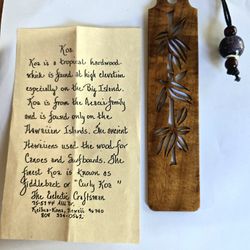 Koa
Koa is a tropical hardwood
which is found at high elevation
especially on the Big Island.
Koa is from the Acacia family
and is found only on the
Hawaiian Islands. The ancient
Hawaiians used the wood for
Canoes and Surfboards. The
finest Koa is known as
fiddleback or "Curly Koa"
The Eclectic Craftsman
Kailua-Kona, Hawaii 96740